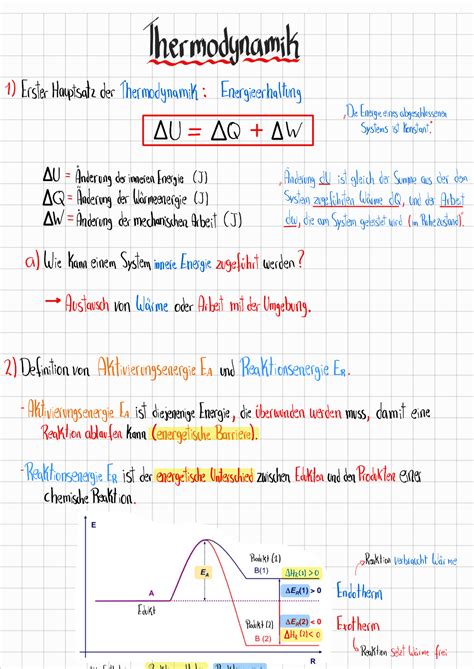 Thermodynamik
1) Erster Hauptsatz der Thermodynamik: Energieerhaltung
ΔU = ΔQ + ΔW
"Die Energie eines abgeschlossenen
Systems ist konstant."
ΔU = Änderung der inneren Energie (J)
ΔQ = Änderung der Wärmeenergie (J)
ΔW = Änderung der mechanischen Arbeit (J)
Änderung dU ist gleich der Summe aus der dem
System zugeführten Wärme dQ, und der Arbeit
dW, die am System geleistet wird (im Ruhezustand).
a) Wie kann einem System innere Energie zugeführt werden?
→ Austausch von Wärme oder Arbeit mit der Umgebung.
2) Definition von Aktivierungsenergie EA und Reaktionsenergie ER.
- Aktivierungsenergie EA ist diejenige Energie, die überwunden werden muss, damit eine
Reaktion ablaufen kann (energetische Barriere).
- Reaktionsenergie ER ist der energetische Unterschied zwischen Edukten und den Produkten einer
chemische Reaktion.
E
Produkt (1)
B(1)
ΔHR(1) > 0
ΔER(1) > 0
EA
A
Edukt
Produkt (2)
B (2)
ΔER(2) < 0
ΔHR (2) < 0
R
Reaktion verbraucht Wärme
Endotherm
Exotherm
Reaktion setzt Wärme frei